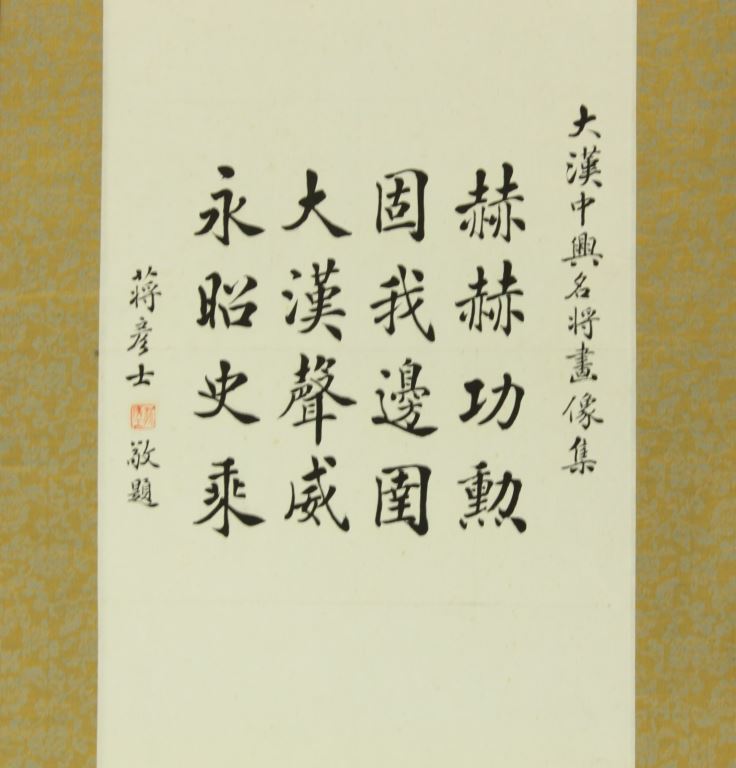 大漢中興名將畫像集
赫赫功勲
固我邊圉
大漢聲威
永昭史乘
蔣彥士敬題